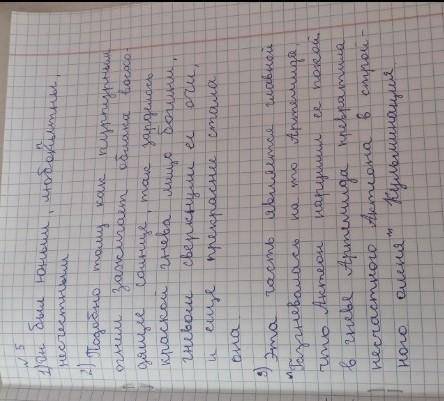 №5
1) Он был юным, любопытным,
несчастным
2) Подобно тому как пурпурным
огнем зажигает облака восхо-
дящее солнце, так зарделось
краской гнева лицо богини,
гневом сверкнули её очи,
и еще прекраснее стала
она
3) Эта часть является главной
"Разгневалась на то Артемида,
что Актеон нарушил её покой.
в гневе Артемида превратила
несчастного Актеона в строй-
ного оленя" Кульминация